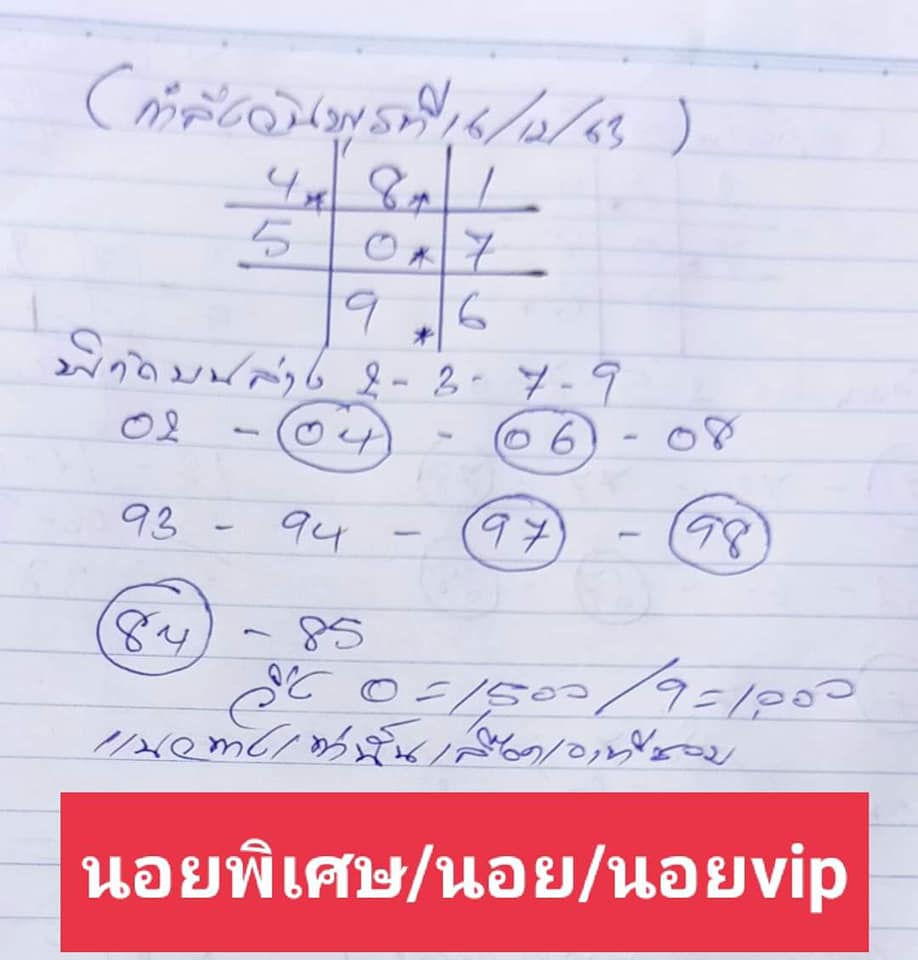 (กำลังวันพุธที่16/12/63)
4* 8* 1
5 0* 7
9* 6
พิกัดบนล่าง 2-3-7-9
02 - 04 - 06 - 08
93 - 94 - 97 - 98
84 - 85
วิ่ง 0=1,500/9=1,000
แนวทางเท่านั้นเลือกเอาที่ชอบ
นอยพิเศษ/นอย/นอยvip